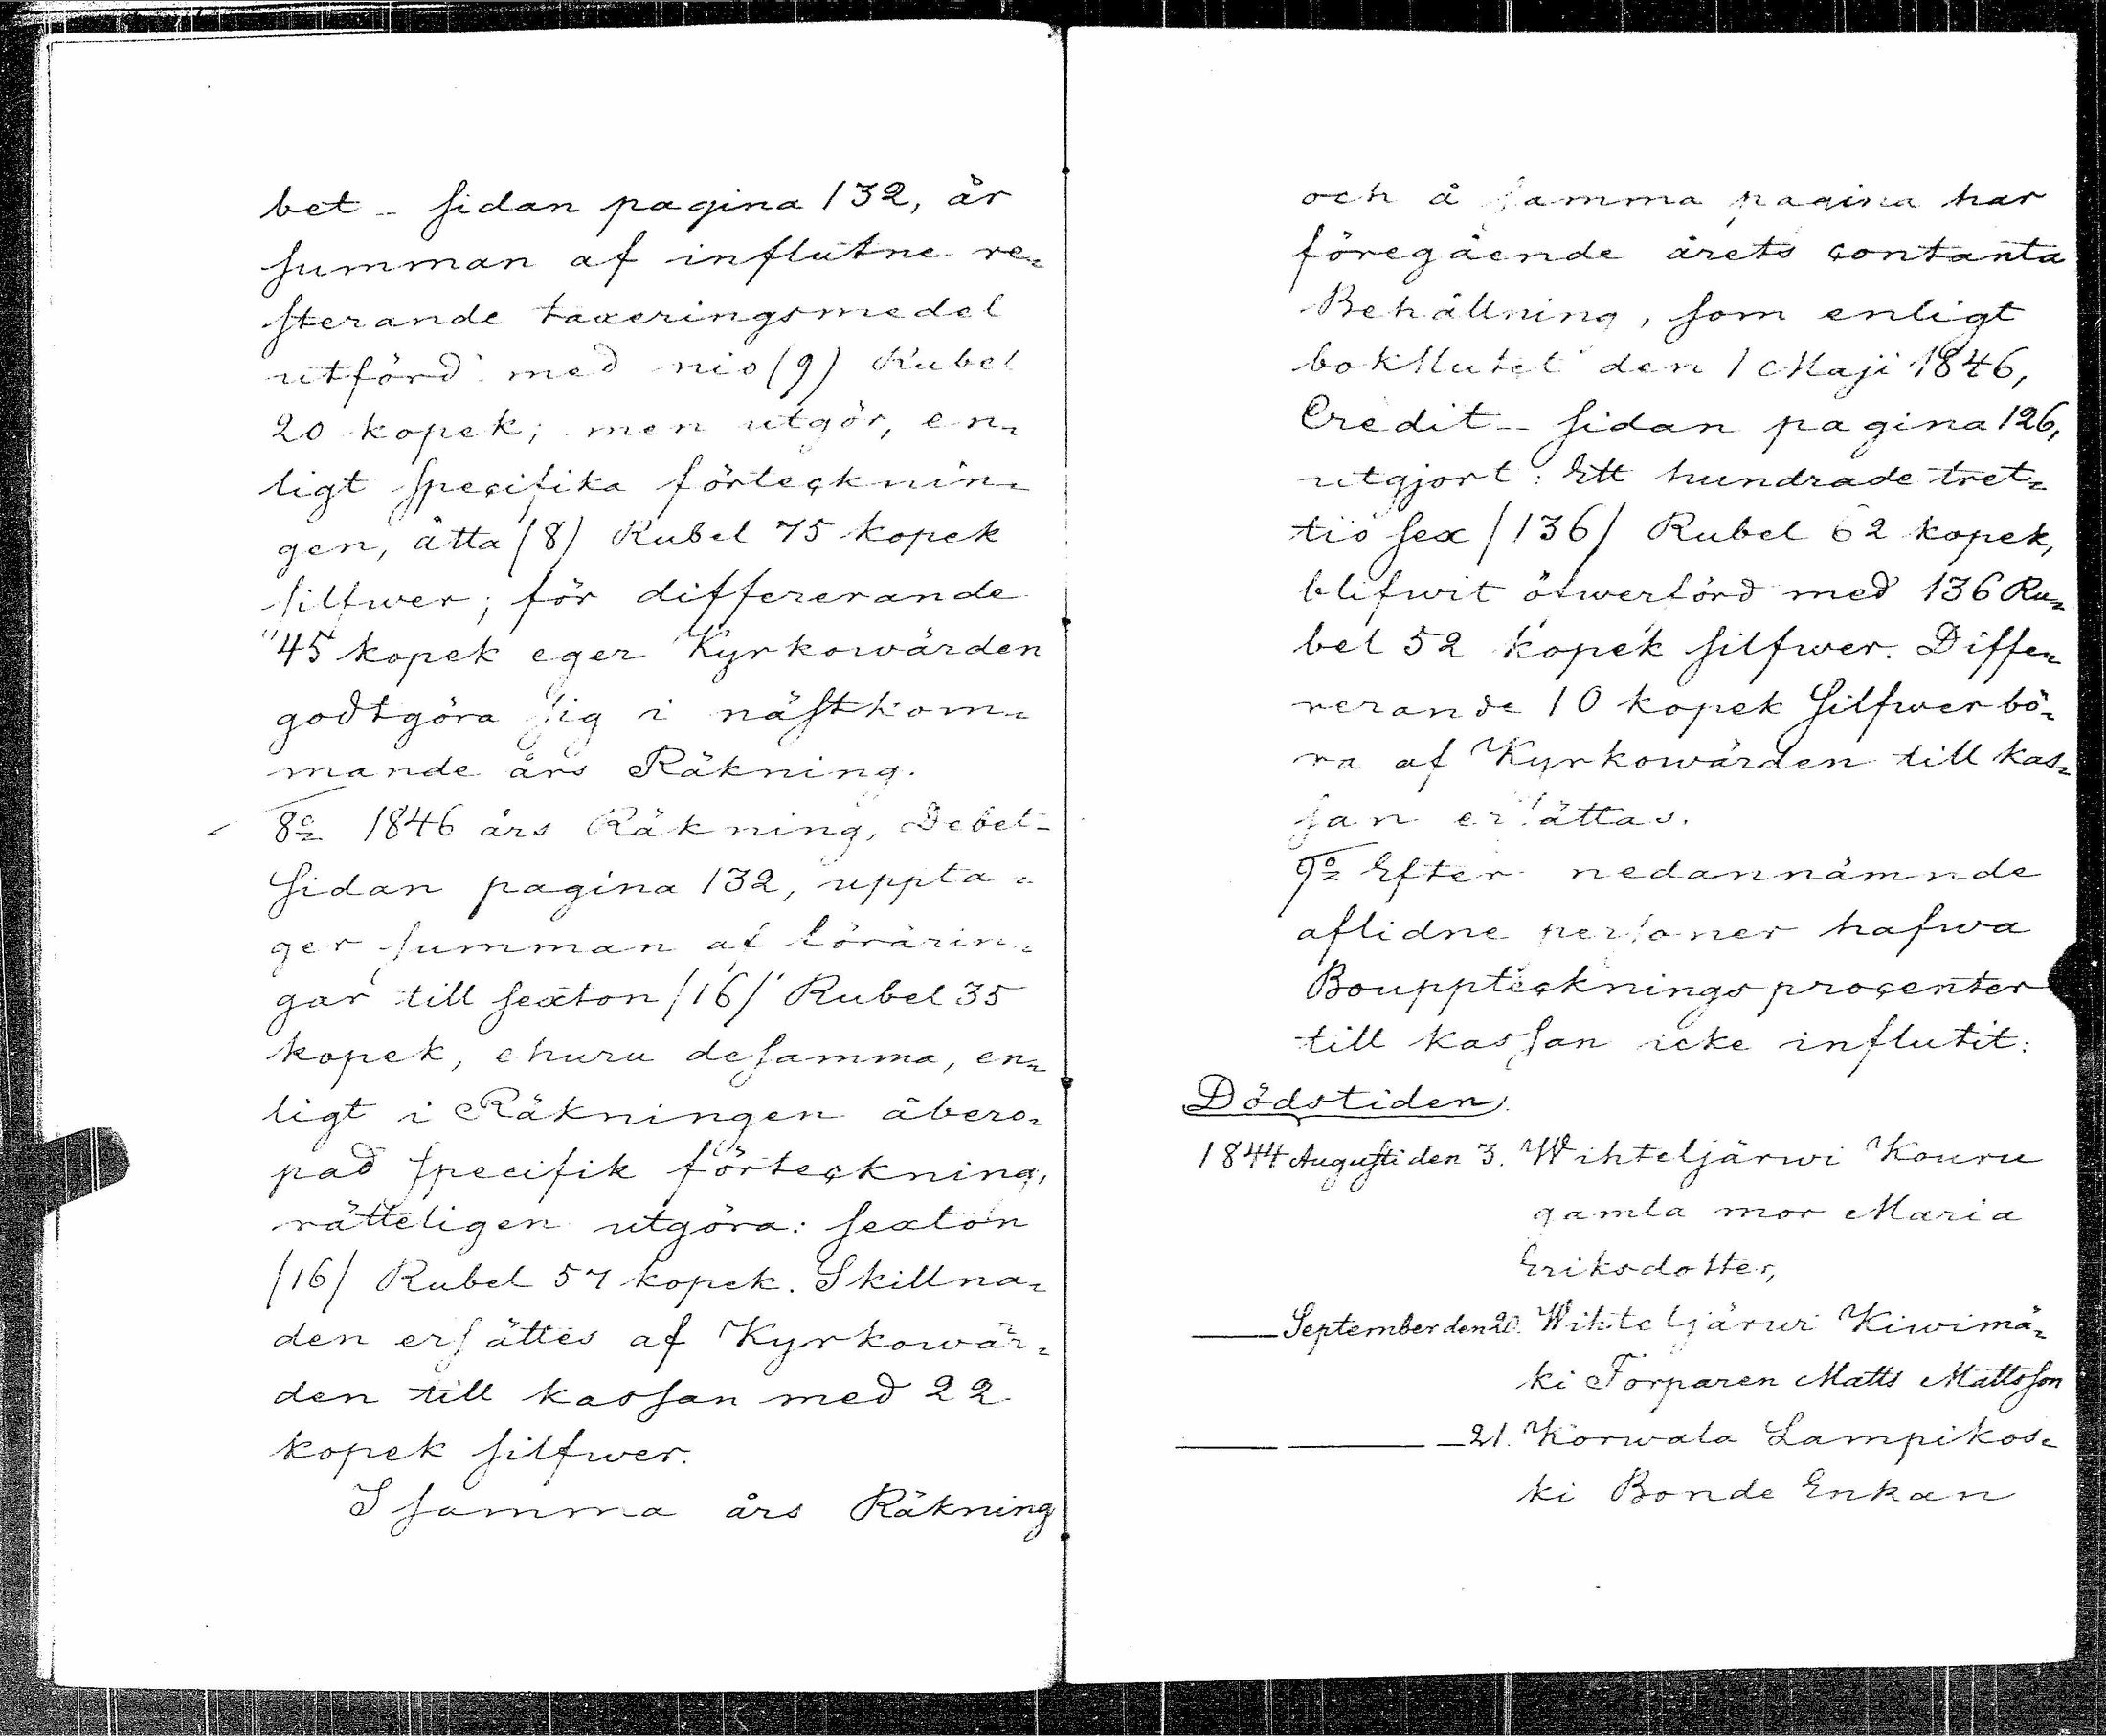 bet- sidan pagina 132, är
summan af influtne re=
sterande taxeringsmedel
utförd med nio (9) Rubel
20 kopek; men utgör, en=
ligt specifika förtecknin=
gen, åtta (8) Rubel 75 kopek
silfwer; för differerande
45 kopek eger Kyrkowärden
godtgöra sig i nästkom=
mande års Räkning.
8o 1846 års Räkning, Debet-
sidan pagina 132, uppta=
ger summan af föräring=
gar till sexton /16/ Rubel 35
kopek, ehuru desamma, en=
ligt i Räkningen åbero=
pad specifik förteckning,
rätteligen utgöra: sexton
/16/ Rubel 57 kopek. Skillna=
den ersättes af Kyrkowär=
den till kassan med 22
kopek silfwer.
I samma års Räkning
och å samma pagina har
föregående årets contanta
Behållning, som enligt
bokslutet den 1 Maji 1846,
Credit- sidan pagina 126,
utgjort: Ett hundrade tret=
tio sex /136/ Rubel 62 kopek,
blifwit öfwerförd med 136 Ru=
bel 52 kopek silfwer. Diffe=
rerande 10 kopek silfwer bö=
ra af Kyrkowärden till kas=
san ersättas.
9o Efter nedannämnde
aflidne personer hafwa
Bouppteckningsprocenter
till kassan icke influtit:
Dödstiden.
1844 Augusti den 3. Wihteljärwi Kouru
gamla mor Maria
Eriksdotter,
— September den 20. Wihteljärwi Kiwimä=
ki Torparen Matts Mattsson
— — 21. Korwala Lampikos=
ki Bonde Enkan